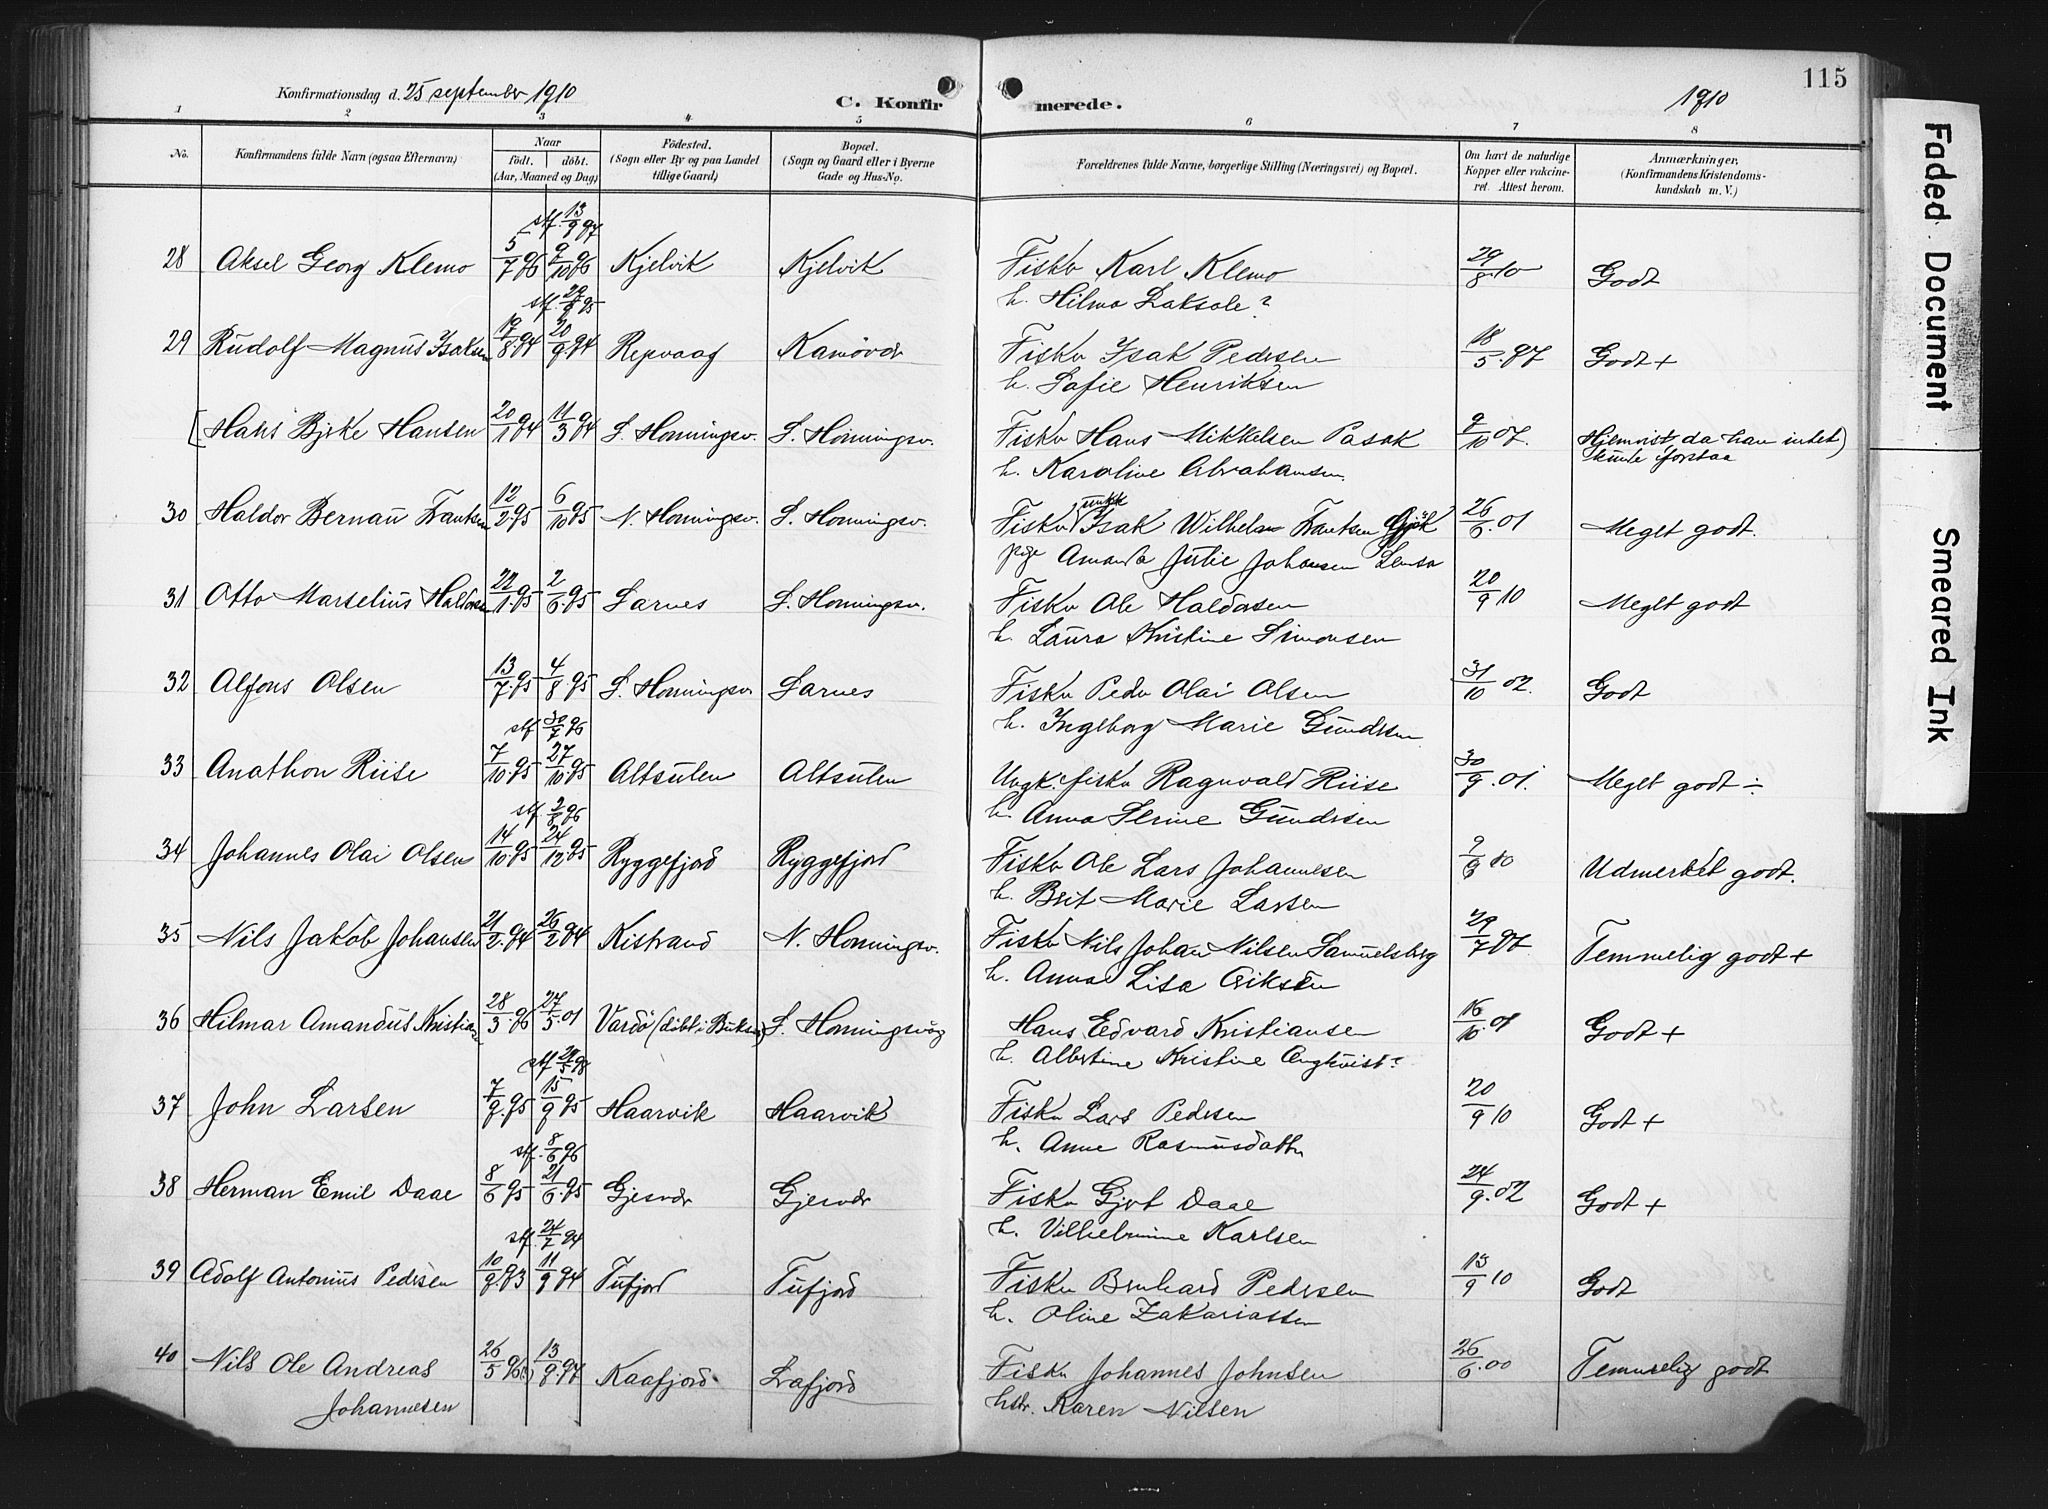 115
Konfirmationsdag d. 25 september 1910
C. Konfirmerede.
1910
1 2 3 4 5 6 7 8
No.
Konfirmandens fulde Navn (ogsaa Efternavn)
Naar
født. døbt.
(Aar, Maaned og Dag)
Födested.
(Sogn eller By og paa Landet tillige Gaard)
Bopæl.
(Sogn og Gaard eller i Byerne Gade og Hus-No.
Forældrenes fulde Navne, borgerlige Stilling (Næringsvei) og Bopæl.
Om havt de naturlige Kopper eller vakcineret. Attest herom.
Anmærkninger,
(Konfirmandens Kristendomskundskab m. V.)
stf. 13/9 97
28 Aksel Georg Klemo 5/7 96 9/10 96 Kjelvik Kjelvik Fisker Karl Klemo 29/8 10 Godt
h. Hilma Laksole?
stf. 29/9 95
29 Rudolf Magnus Isaksen 17/8 94 20/9 94 Repvaag Kamövær Fisker Isak Pedersen 18/5 97 Godt +
h. Sofie Henriksen
[Hans Bjrke Hansen 20/1 94 11/3 94 S. Honningsv. S. Honningsv. Fisker Hans Mikkelsen Pasak 9/10 07. Hjemvist da han intet)
kunde forstaa
h. Karoline Abrahamsen
30 Haldor Bernau Frantsen 12/2 95 6/10 95 N. Honningsv. S. Honningsv. Fisker ungk Isak Wilhelm Frantsen Gjök 26/6 01 Meget godt.
pige Amanda Julie Johansen
31 Otto Marselius Haldorsen 22/1 95 2/6 95 Sarnes S. Honningsv. Fisker Ole Haldorsen 20/9 10 Meget godt
h. Laura Kristine Simonsen
32 Alfons Olsen 13/7 95 4/8 95 S. Honningsv. Sarnes Fisker Peder Olai Olsen 31/10 02. Godt
h. Ingeborg Marie Gundersen
stf 30/7 96
33 Anathon Riise 7/10 95 27/10 95 Altsulen Altsulen Ungk. fisker Ragnvald Riise 30/9 01. Meget godt ÷
h. Anna Serine Gundersen
stf. 2/8 96
34 Johannes Olai Olsen 14/10 95 24/12 95 Ryggefjord Ryggefjord Fisker Ole Lars Johannesen 9/9 10 Udmerket godt.
h. Brit Marie Larsen
35 Nils Jakob Johansen 21/2 94 26/2 94 Kistrand N. Honningsv. Fisker Nils Johan Nilsen Samuelsberg 29/7 97 Temmelig godt +
h. Anna Lisa Eriksen
36 Hilmar Amandus Kristian 28/3 96 27/5 01 Vardö (döbt i S. Honningsvåg Hans Edvard Kristiansen 16/10 01 Godt +
h. Albertine Kristine Engkvist?
37 John Larsen 7/9 95 15/9 95 Haarvik Haarvik Fisker Lars Pedersen 20/9 10 Godt +
h. Anne Rasmusdatter
stf. 8/6 96
38 Herman Emil Daae 8/6 95 21/6 95 Gjesvær Gjesvær Fisker Gjert Daae 24/9 02 Godt +
h. Vilhelmine Karlsen
stf. 24/7 94
39 Adolf Antonius Pedersen 10/9 93 11/9 94 Tufjord Tufjord Fisker Bernhard Pedersen 13/9 10 Godt
h. Oline Zakariassen
40 Nils Ole Andreas 26/5 96 13/9 97 Kaafjord Lafjord Fisker Johannes Johnsen 26/6 00 Temmelig godt
Johannesen hstr. Karen Nilsen
Faded Document
Smeared Ink